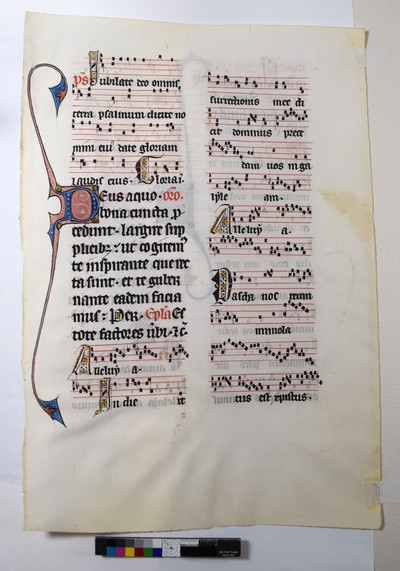 ps Jubilate deo omnis
terra psalmum dicite no
mini eiu date gloriam
laudis eius. Gloria.
Deus a quo. oro.
bona cuncta p
cedunt. largire sup
plicibz ut cogitem
te inspirante que rec
ta sint. et te guber
nante eadem facia
mus. Per. Epla Es
tote factores ubi. et c.
Alleluya
In die re
surrectionis mee di
cit dominus prece
dam vos in ga
lyle am.
Alleluya.
Pascha nostrum
immola
tus est xpistus